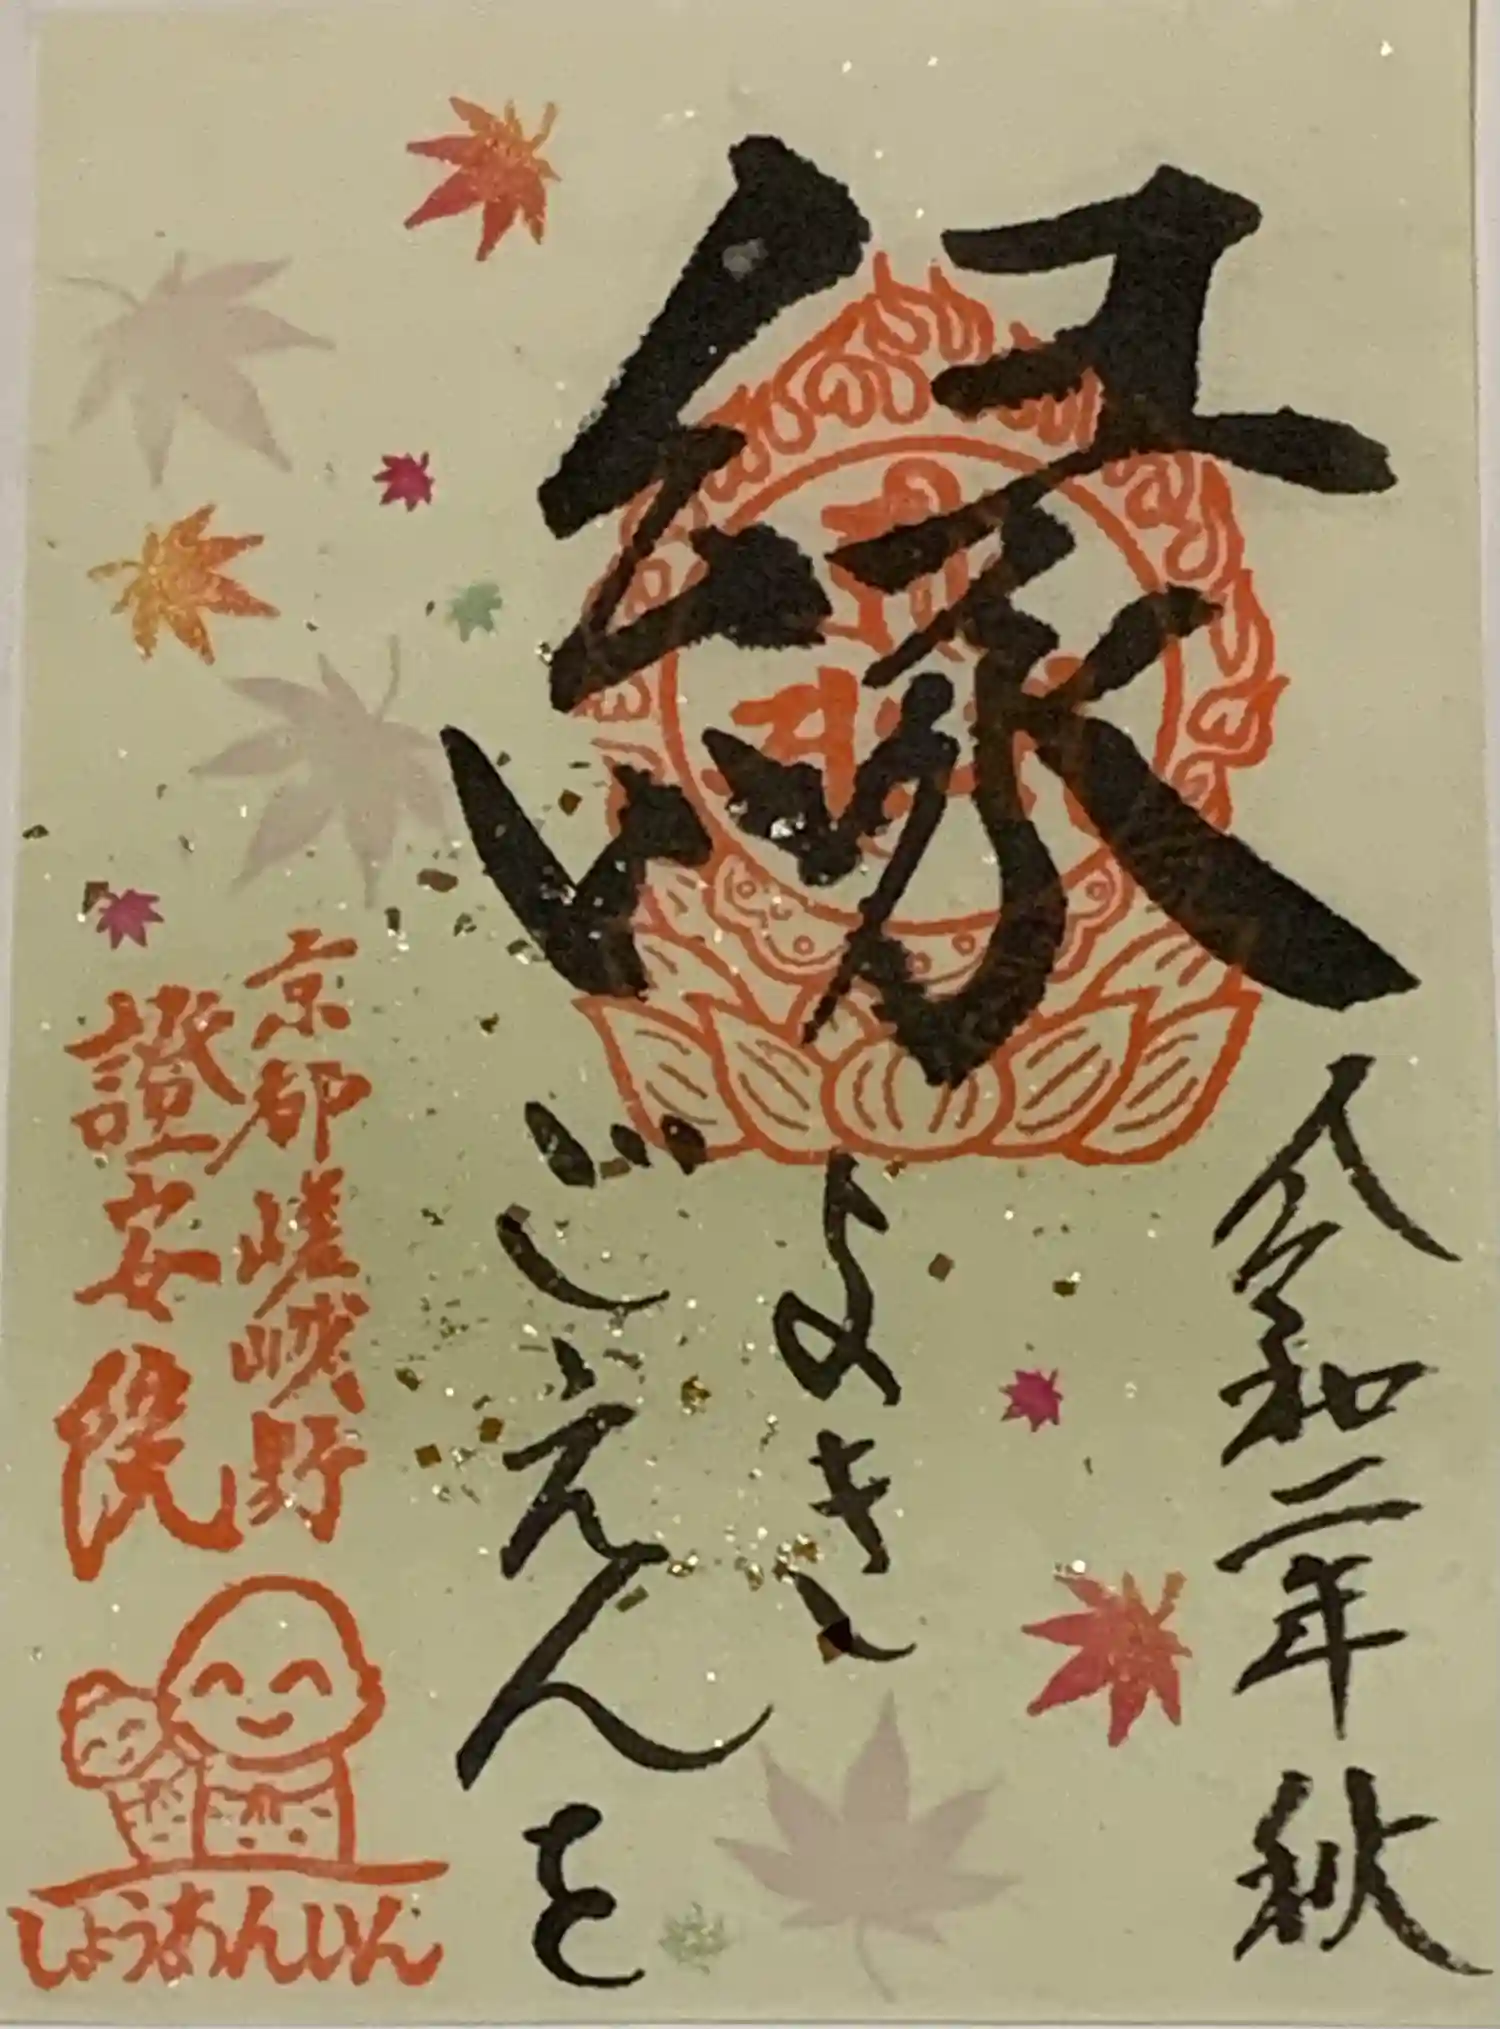 縁
令和二年秋
よき
ごえんを
京都嵯峨野
證安院
しょうあんいん